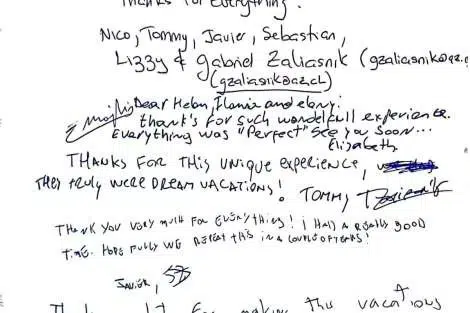 Thanks for Everything.
Nico, Tommy, Javier, Sebastian,
Lizzy & Gabriel Zaliasnik (gzaliasnik@az.
(gzaliasnik@az.cl)
Dear Heber, Flavia and ebony:
thank's for such wonderfull experience.
Everything was "Perfect" See you soon...
Elizabeth
THANKS FOR THIS UNIQUE EXPERIENCE,
THEY TRULY WERE DREAM VACATIONS! TOMMY
THANK YOU VERY MUCH FOR EVERYTHING! I HAD A REALLY GOOD
TIME. HOPE FULLY WE REPEAT THIS IN A COUPLE OF YEARS!
JAVIER,
for making the vacations